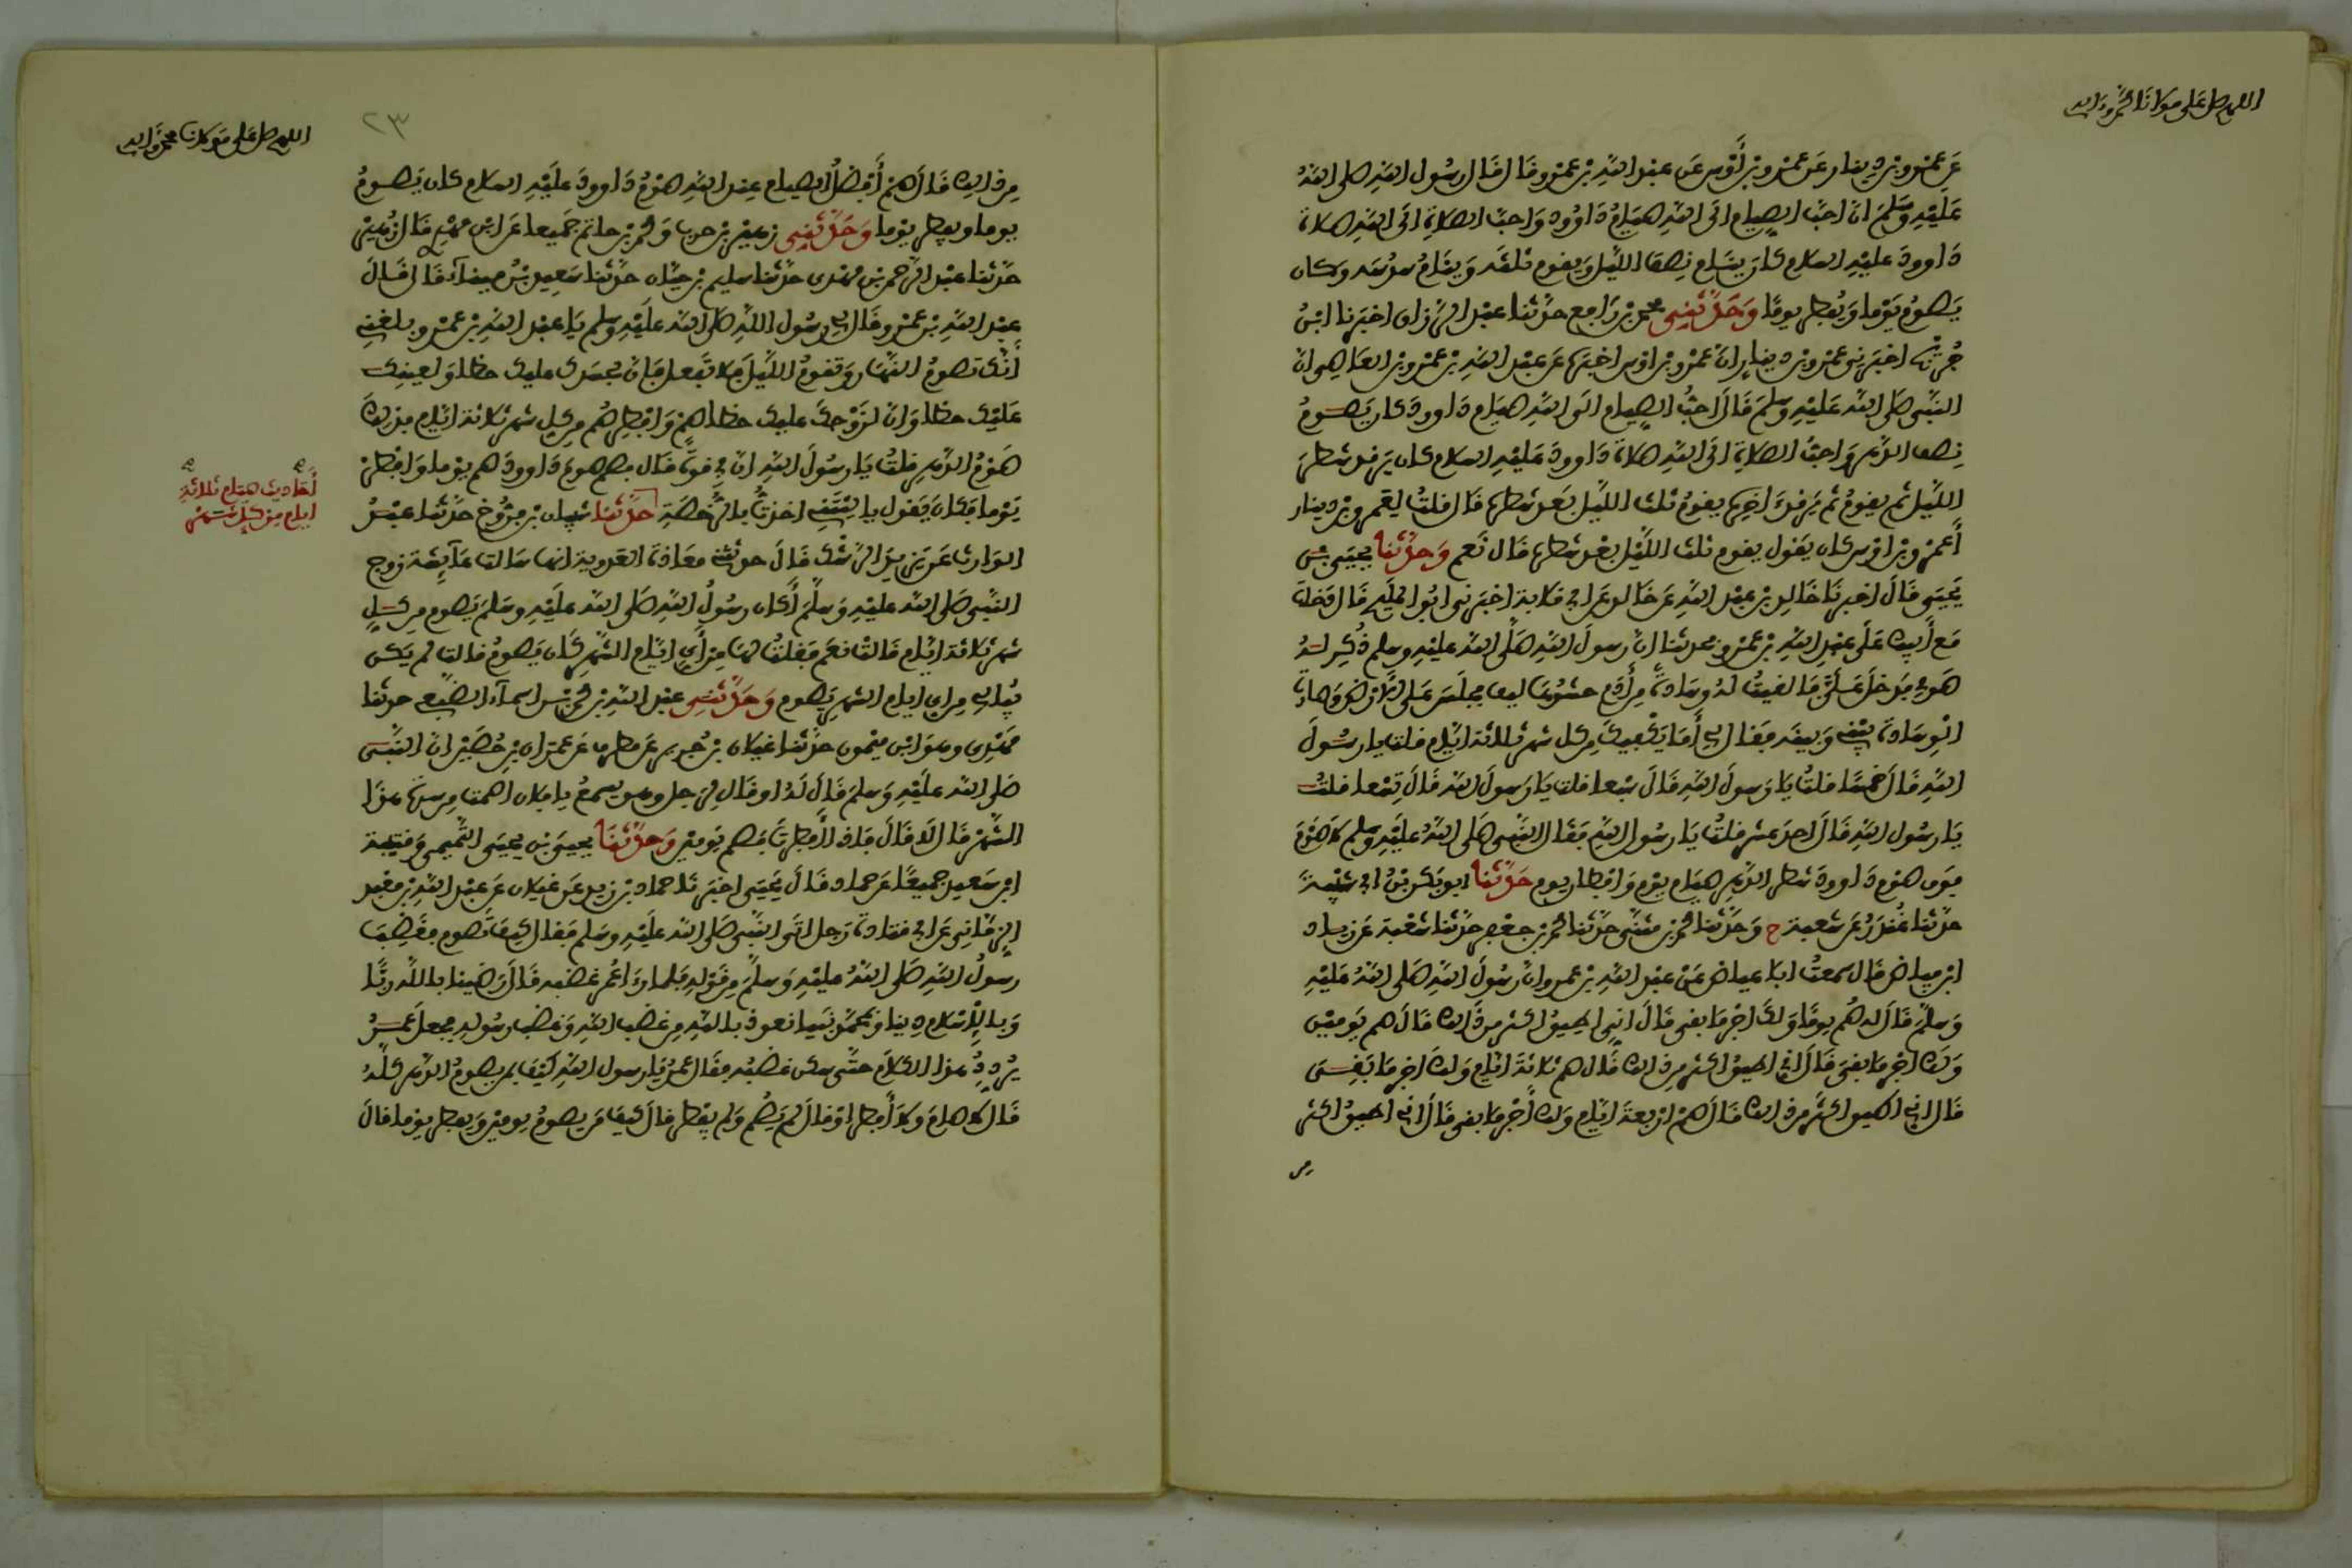 اللهم صل على مولانا محمد وءاله
عن عمرو بن دينار عن عمرو بن أوس عن عبد الله بن عمرو قال قال رسول الله صلى الله
عليه وسلم ان احب الصيام الى الله صيام داوود واحب الصلاة الى الله صلاة
داوود عليه السلام كان ينام نصف الليل ويقوم ثلثه وينام سدسه وكان
يصوم يوما ويفطر يوما وحدثني محمد بن رافع حدثنا عبد الرزاق اخبرنا ابن
جريج اخبرني عمرو بن دينار ان عمرو بن اوس اخبره عن عبد الله بن عمرو بن العاصي ان
النبي صلى الله عليه وسلم قال احب الصيام الى الله صيام داوود كان يصوم
نصف الدهر واحب الصلاة الى الله صلاة داوود عليه السلام كان يرقد شطر
الليل ثم يقوم ثم يرقد اخره يقوم ثلث الليل بعد شطره قال قلت لعمرو بن دينار
أعمرو بن اوس كان يقول يقوم ثلث الليل بعد شطره قال نعم وحدثنا يحيى بن
يحيى قال اخبرنا خالد بن عبد الله عن خالد عن ابي قلابة اخبرني ابو المليح قال دخلت
مع أبيك على عبد الله بن عمرو فحدثنا ان رسول الله صلى الله عليه وسلم ذكر له
صومي فدخل علي فالقيت له وسادة من أدم حشوها ليف فجلس على الارض وصارت
الوسادة بيني وبينه فقال لي أما يكفيك من كل شهر ثلاثة ايام قلت يا رسول
الله قال خمسا قلت يا رسول الله قال سبعا قلت يا رسول الله قال تسعا قلت
يا رسول الله قال احد عشر قلت يا رسول الله فقال النبي صلى الله عليه وسلم لا صوم
فوق صوم داوود شطر الدهر صيام يوم وافطار يوم حدثنا ابو بكر بن ابي شيبة
حدثنا غندر عن شعبة ح وحدثنا محمد بن مثنى حدثنا محمد بن جعفر حدثنا شعبة عن زياد
ابن فياض قال سمعت ابا عياض عن عبد الله بن عمرو ان رسول الله صلى الله عليه
وسلم قال له صم يوما ولك اجر ما بقي قال اني اطيق اكثر من ذلك قال صم يومين
ولك اجر ما بقي قال اني اطيق اكثر من ذلك قال صم ثلاثة ايام ولك اجر ما بقي
قال اني اطيق اكثر من ذلك قال صم اربعة ايام ولك أجر ما بقي قال اني اطيق اكثر
من
اللهم صل على مولانا محمد وءاله
٢٣
من ذلك قال صم أفضل الصيام عند الله صوم داوود عليه السلام كان يصوم
يوما ويفطر يوما وحدثني زهير بن حرب ومحمد بن حاتم جميعا عن ابن مهدي قال زهير
حدثنا عبد الرحمن بن مهدي حدثنا سليم بن حيان حدثنا سعيد بن ميناء قال قال
عبد الله بن عمرو قال لي رسول الله صلى الله عليه وسلم يا عبد الله بن عمرو بلغني
أنك تصوم النهار وتقوم الليل فلا تفعل فان لجسدك عليك حظا ولعينك
عليك حظا وان لزوجك عليك حظا صم وافطر صم من كل شهر ثلاثة ايام فذلك
صوم الدهر قلت يا رسول الله ان بي قوة قال فصم صوم داوود صم يوما وافطر
يوما فكان يقول يا ليتني اخذت بالرخصة حدثنا شيبان بن فروخ حدثنا عبد
الوارث عن يزيد الرشك قال حدثتني معاذة العدوية انها سالت عائشة زوج
النبي صلى الله عليه وسلم أكان رسول الله صلى الله عليه وسلم يصوم من كل
شهر ثلاثة ايام قالت نعم فقلت لها من أي ايام الشهر كان يصوم قالت لم يكن
يبالي من اي ايام الشهر يصوم وحدثني عبد الله بن محمد بن اسماء الضبعي حدثنا
مهدي وهو ابن ميمون حدثنا غيلان بن جرير عن مطرف عن عمران بن حصين ان النبي
صلى الله عليه وسلم قال له او قال لرجل وهو يسمع يا فلان اصمت من سرة هذا
الشهر قال لا قال فاذا أفطرت فصم يومين وحدثنا يحيى بن يحيى التميمي وقتيبة
ابن سعيد جميعا عن حماد قال يحيى اخبرنا حماد بن زيد عن غيلان عن عبد الله بن معبد
الزماني عن ابي قتادة رجل اتى النبي صلى الله عليه وسلم فقال كيف تصوم فغضب
رسول الله صلى الله عليه وسلم من قوله فلما راى عمر غضبه قال رضينا بالله ربا
وبالإسلام دينا وبمحمد نبيا نعوذ بالله من غضب الله وغضب رسوله فجعل عمر
يردد هذا الكلام حتى سكن غضبه فقال عمر يا رسول الله كيف بمن يصوم الدهر كله
قال لا صام ولا أفطر او قال لم يصم ولم يفطر قال كيف من يصوم يومين ويفطر يوما قال
أحاديث صيام ثلاثة
ايام من كل شهر